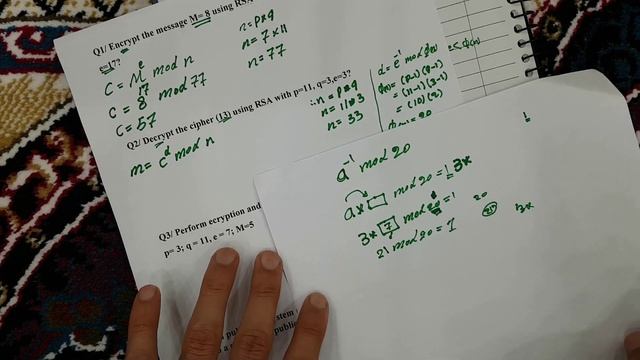 Q1/ Encrypt the message M= 8 using RSA
e=17?
C = M^e mod n
C = 8^17 mod 77
C = 57
n = P*q
n = 7 * 11
n = 77
Q2/ Decrypt the cipher (13) using RSA with p=11, q=3,e=3?
m = c^d mod n
∴ n = P*q
n = 11*3
n = 33
d = e^-1 mod
= (P-1)(q-1)
= (11-1)(3-1)
= (10)(2)
= 20
Q3/ Perform ecryption and
p= 3; q = 11, e = 7; M=5
a^-1 mod 20
a * □ mod 20 = 1 3*
3 * 7 mod 20 = 1
21 mod 20 = 1
20
21
3*
1
stem
public